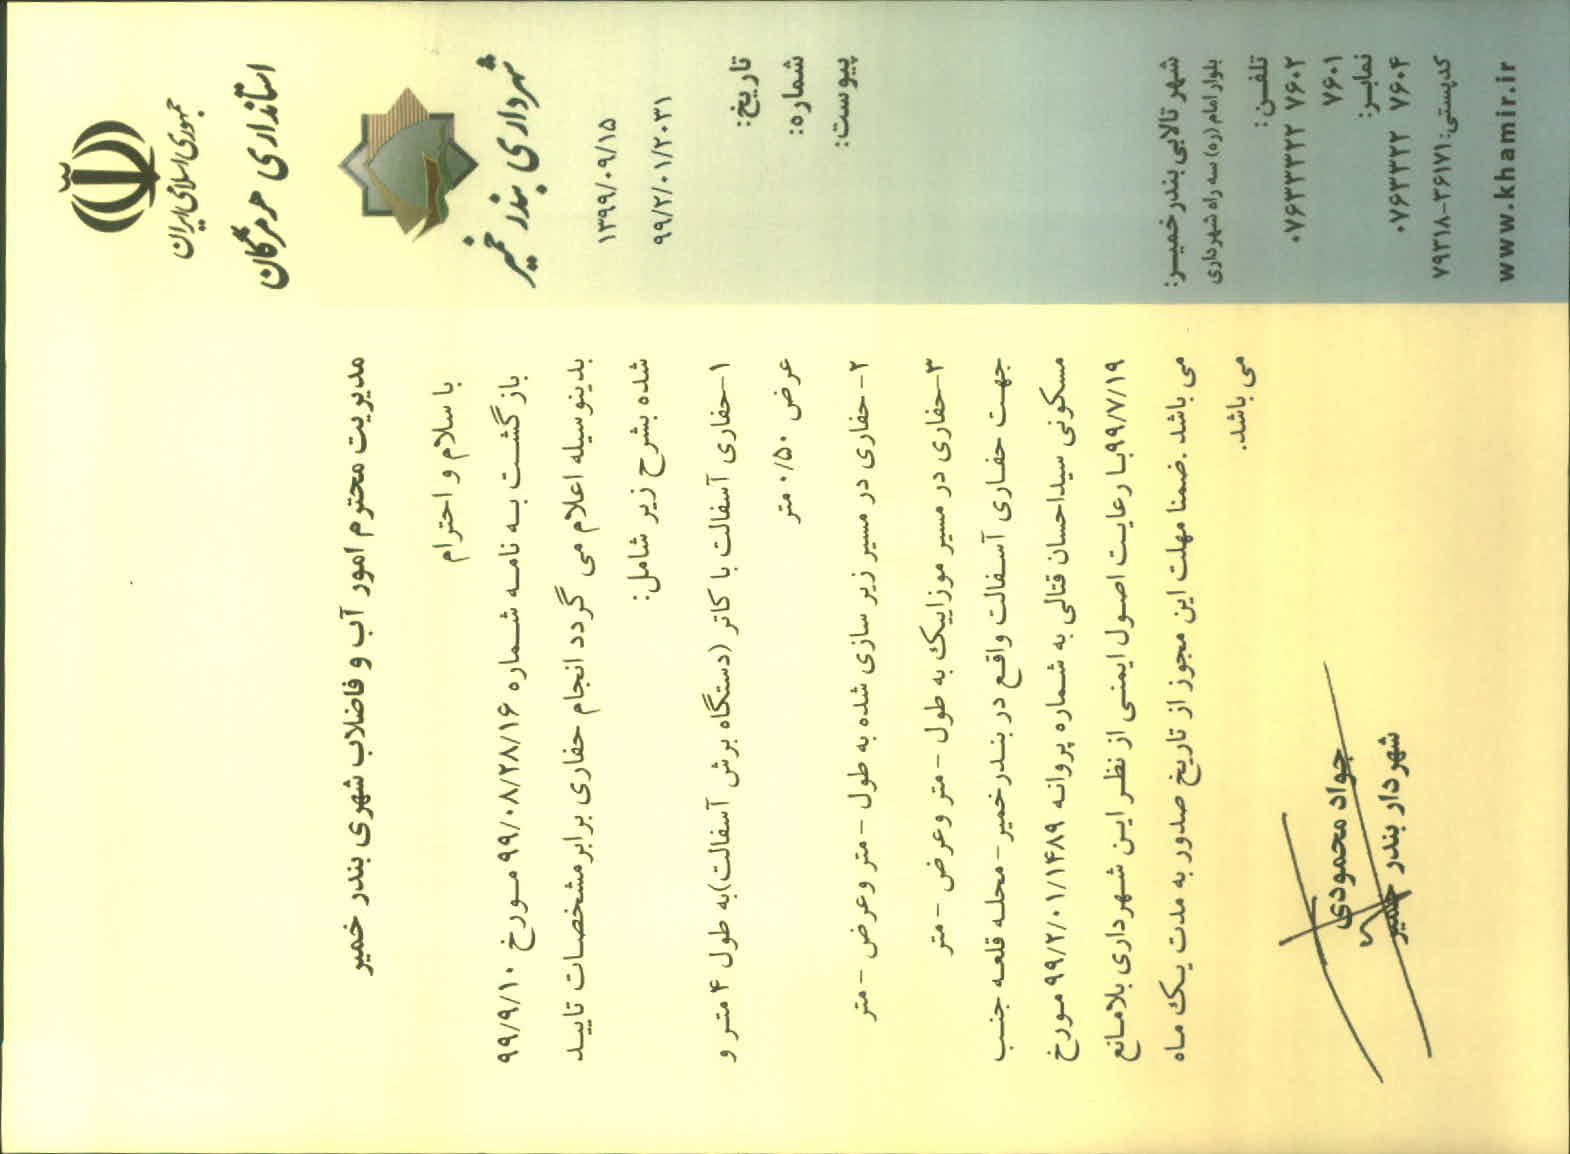 جمهوری اسلامی ایران
استانداری هرمزگان
شهرداری بندر خمیر
۱۳۹۹/۰۹/۱۵
۹۹/۲/۰۱/۲۰۳۱
تاریخ:
شماره:
پیوست:
مدیریت محترم امور آب و فاضلاب شهری بندر خمیر
با سلام و احترام
بازگشت به نامه شماره ۹۹/۰۸/۲۸/۱۶ مورخ ۹۹/۹/۱۰
بدینوسیله اعلام می گردد انجام حفاری برابر مشخصات تایید
شده بشرح زیر شامل:
۱-حفاری آسفالت با کاتر (دستگاه برش آسفالت)به طول ۴ متر و
عرض ۰/۵۰ متر
۲-حفاری در مسیر زیر سازی شده به طول - متر وعرض - متر
۳-حفاری در مسیر موزاییک به طول - متر وعرض - متر
جهت حفاری آسفالت واقع در بندرخمیر- محله قلعه جنب
مسکونی سیداحسان قتالی به شماره پروانه ۹۹/۲/۰۱/۱۴۸۹ مورخ
۹۹/۷/۱۹با رعایت اصول ایمنی از نظر این شهرداری بلامانع
می باشد .ضمنا مهلت این مجوز از تاریخ صدور به مدت یک ماه
می باشد.
جواد محمودی
شهردار بندر خمیر
شهر تالابی بندرخمیر:
بلوار امام (ره) سه راه شهرداری
تلفن:
۰۷۶۳۳۳۲۲ ۷۶۰۲
۷۶۰۱
نمابر:
۰۷۶۳۳۲۲ ۷۶۰۴
کدپستی: ۷۹۳۱۸-۳۶۱۷۱
www.khamir.ir